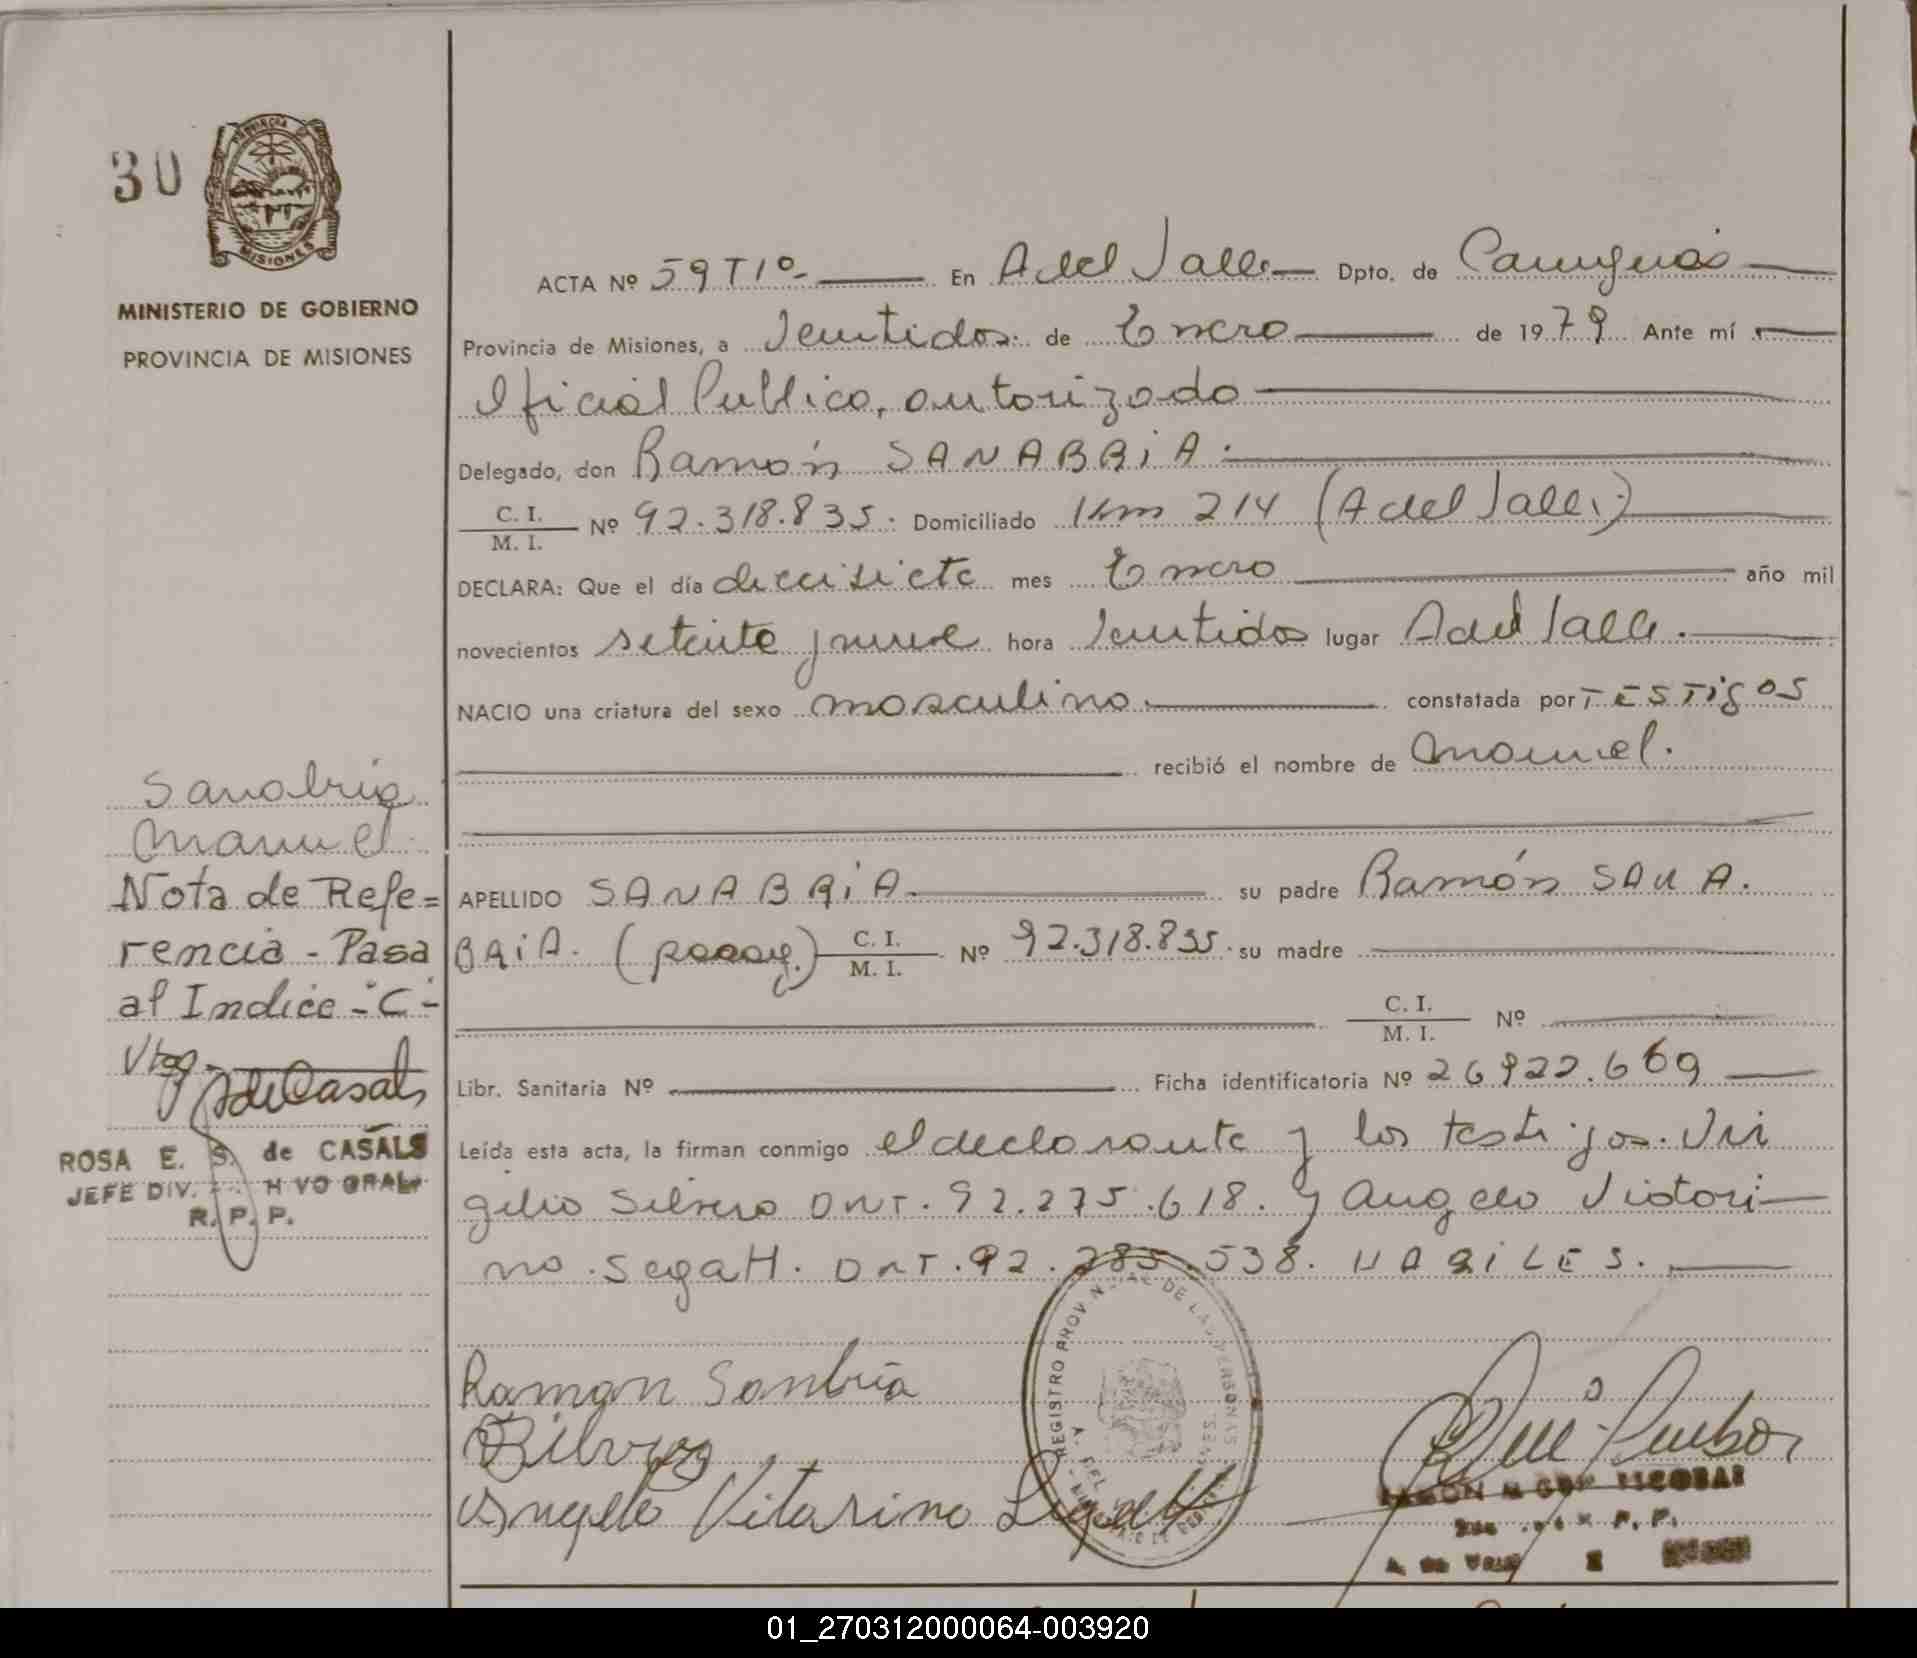 30
PROVINCIA DE
MISIONES
MINISTERIO DE GOBIERNO
PROVINCIA DE MISIONES
ACTA Nº 59 T1º En A del Valle Dpto. de Cainguás
Provincia de Misiones, a Veintidos de Enero de 1979 Ante mí
Oficial Publico, autorizado
Delegado, don Ramón SANABRiA.
C. I. / M. I. Nº 92.318.835. Domiciliado Km 214 (A del Valle)
DECLARA: Que el día diecisiete mes Enero año mil
novecientos setenta y nueve hora Veintidos lugar A del Valle.
NACIO una criatura del sexo masculino constatada por TESTigos
recibió el nombre de Manuel.
APELLIDO SANABRiA su padre Ramón SANA
BRiA. (paaay.) C. I. / M. I. Nº 92.318.835. su madre
C. I. / M. I. Nº
Libr. Sanitaria Nº Ficha identificatoria Nº 26922.669
Leída esta acta, la firman conmigo el declarante y los testigos. Vir
gilio Silvero DNI. 92.275.618. y Angelo Victori
no. Segatt. DNI. 92.285.538. HABiLES.
Sanabria
Manuel
Nota de Refe=
rencia - Pasa
al Indice - "C" -
ROSA E. S. de CASALS
JEFE DIV. GRAL.
R. P. P.
Ramon Sanbria
Angelo Vitarino Segatt
REGISTRO PROVINCIAL DE LAS PERSONAS
ESCOBAR
R. P. P.
01_270312000064-003920